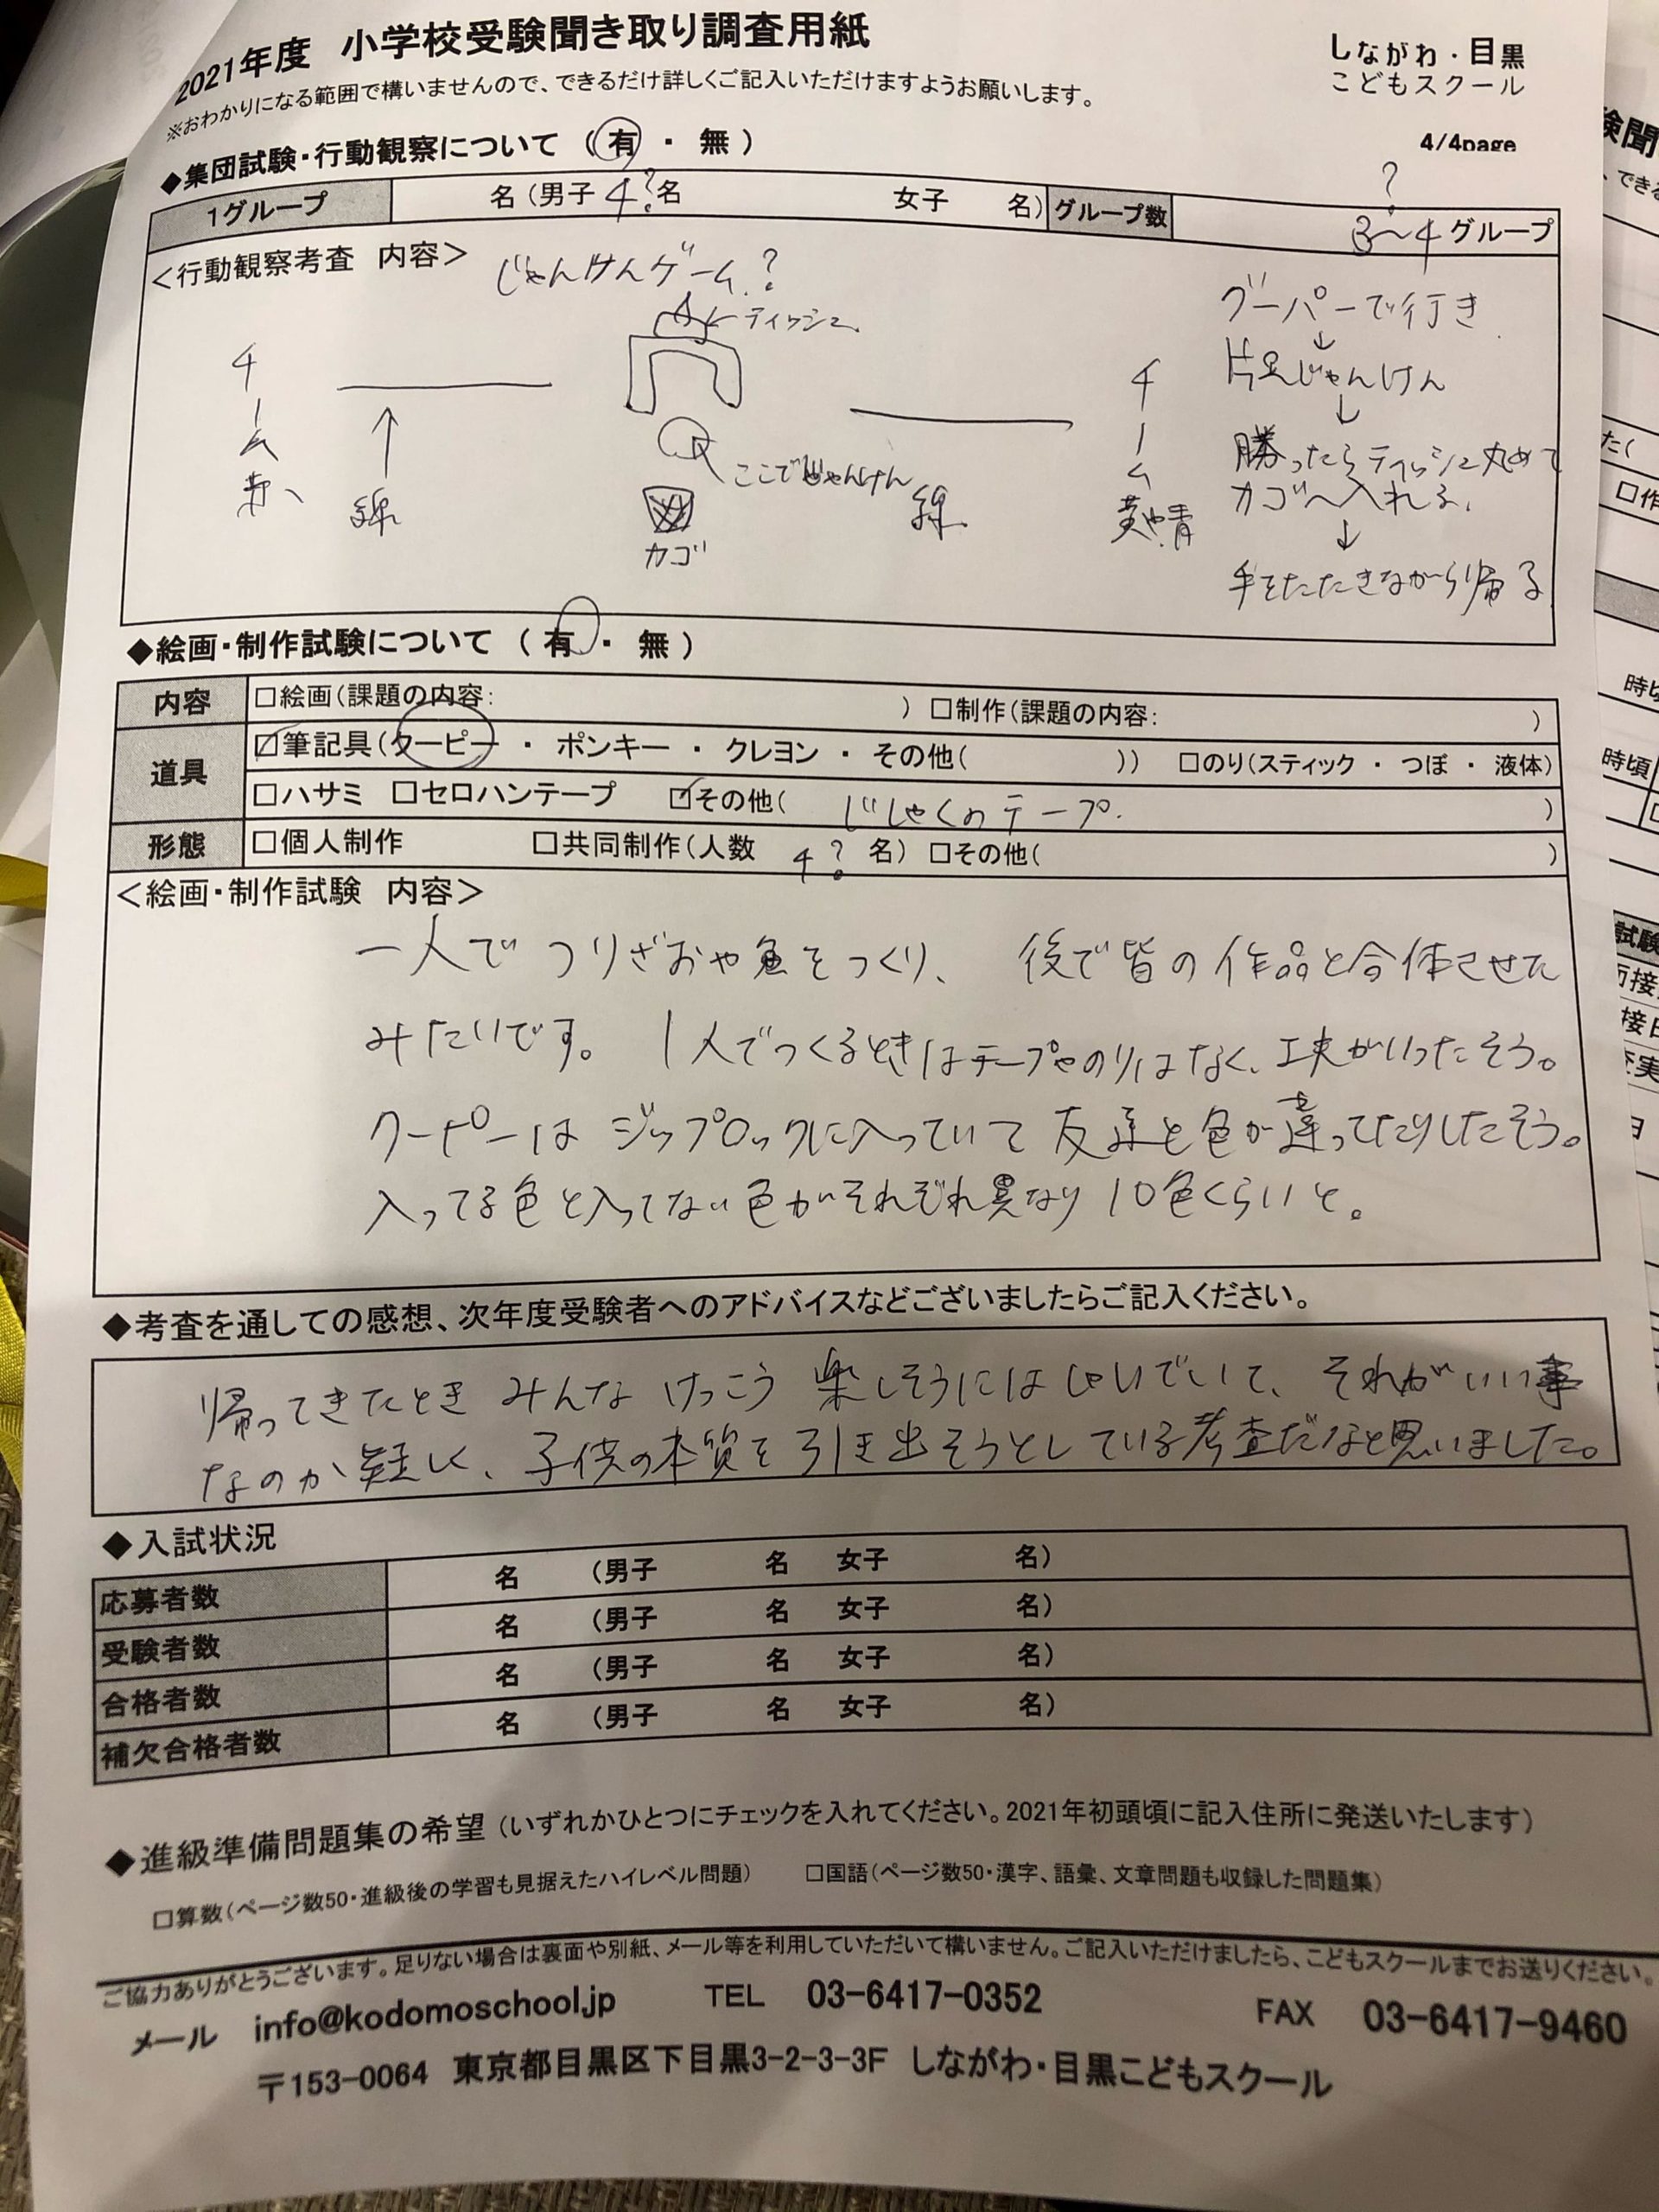 2021年度 小学校受験聞き取り調査用紙
しながわ・目黒
こどもスクール
※おわかりになる範囲で構いませんので、できるだけ詳しくご記入いただけますようお願いします。
4/4page
◆集団試験・行動観察について ( 有 ・ 無 )
1グループ 名 (男子 4?名 女子 名) グループ数 3~4グループ ?
<行動観察考査 内容> じゃんけんゲーム?
←ティッシュ
チーム赤
線
ここでじゃんけん
カゴ
線
チーム黄や青
グーパーで行き
↓
片足じゃんけん
↓
勝ったらティッシュ丸めて
カゴへ入れる。
↓
手をたたきながら帰る
◆絵画・制作試験について ( 有 ・ 無 )
内容 □絵画(課題の内容: ) □制作(課題の内容: )
道具 ☑筆記具(クーピー ・ ポンキー ・ クレヨン ・ その他( )) □のり(スティック ・ つぼ ・ 液体)
□ハサミ □セロハンテープ ☑その他( じしゃくのテープ. )
形態 □個人制作 □共同制作(人数 4? 名) □その他( )
<絵画・制作試験 内容>
一人で つりざおや魚をつくり、 後で皆の作品と合体させた
みたいです。 1人でつくるときはテープやのりはなく、工夫がいったそう。
クーピーは ジップロックに入っていて 友達と色が違ってたりしたそう。
入ってる色と入ってない色がそれぞれ異なり 10色くらいと。
◆考査を通しての感想、次年度受験者へのアドバイスなどございましたらご記入ください。
帰ってきたとき みんな けっこう 楽しそうにはしゃいでいて、それがいい事
なのか難しく、子供の本質を引き出そうとしている考査だなと思いました。
◆入試状況
応募者数 名 (男子 名 女子 名)
受験者数 名 (男子 名 女子 名)
合格者数 名 (男子 名 女子 名)
補欠合格者数 名 (男子 名 女子 名)
◆進級準備問題集の希望 (いずれかひとつにチェックを入れてください。2021年初頭頃に記入住所に発送いたします)
□算数(ページ数50・進級後の学習も見据えたハイレベル問題) □国語(ページ数50・漢字、語彙、文章問題も収録した問題集)
ご協力ありがとうございます。足りない場合は裏面や別紙、メール等を利用していただいて構いません。ご記入いただけましたら、こどもスクールまでお送りください。
メール info@kodomoschool.jp TEL 03-6417-0352 FAX 03-6417-9460
〒153-0064 東京都目黒区下目黒3-2-3-3F しながわ・目黒こどもスクール